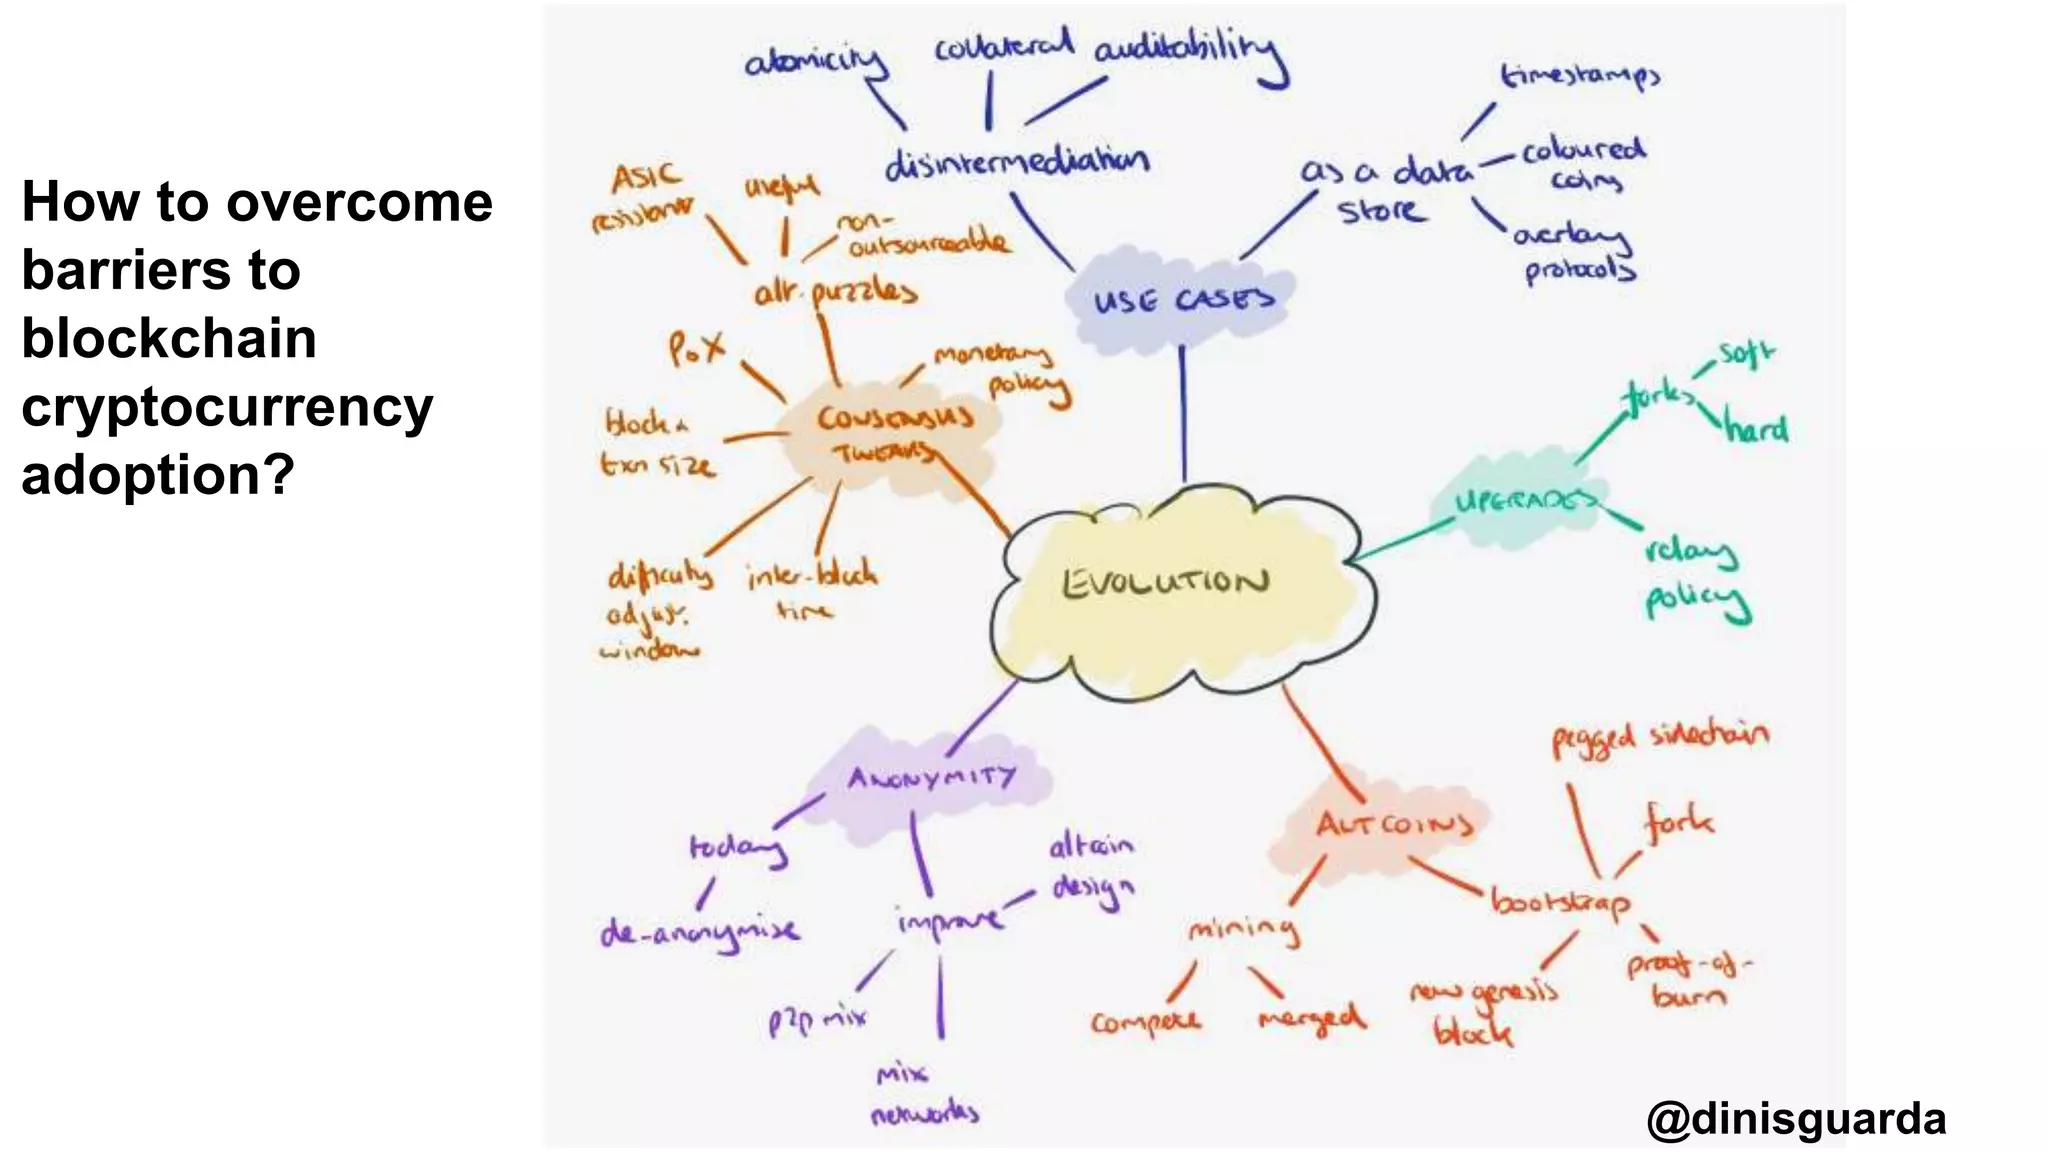 How to overcome
barriers to
blockchain
cryptocurrency
adoption?
atomicity
collateral
auditability
disintermediation
timestamps
as a data
store
coloured
coins
overlay
protocols
USE CASES
ASIC
resistance
useful
non-
outsourceable
alt. puzzles
PoX
monetary
policy
block &
txn size
CONSENSUS
TWEAKS
difficulty
adjust.
window
inter-block
time
soft
forks
hard
UPGRADES
relay
policy
EVOLUTION
ANONYMITY
today
de-anonymise
improve
altcoin
design
p2p mix
mix
networks
ALTCOINS
pegged sidechain
fork
bootstrap
proof-of-
burn
new genesis
block
mining
compete
merged
@dinisguarda